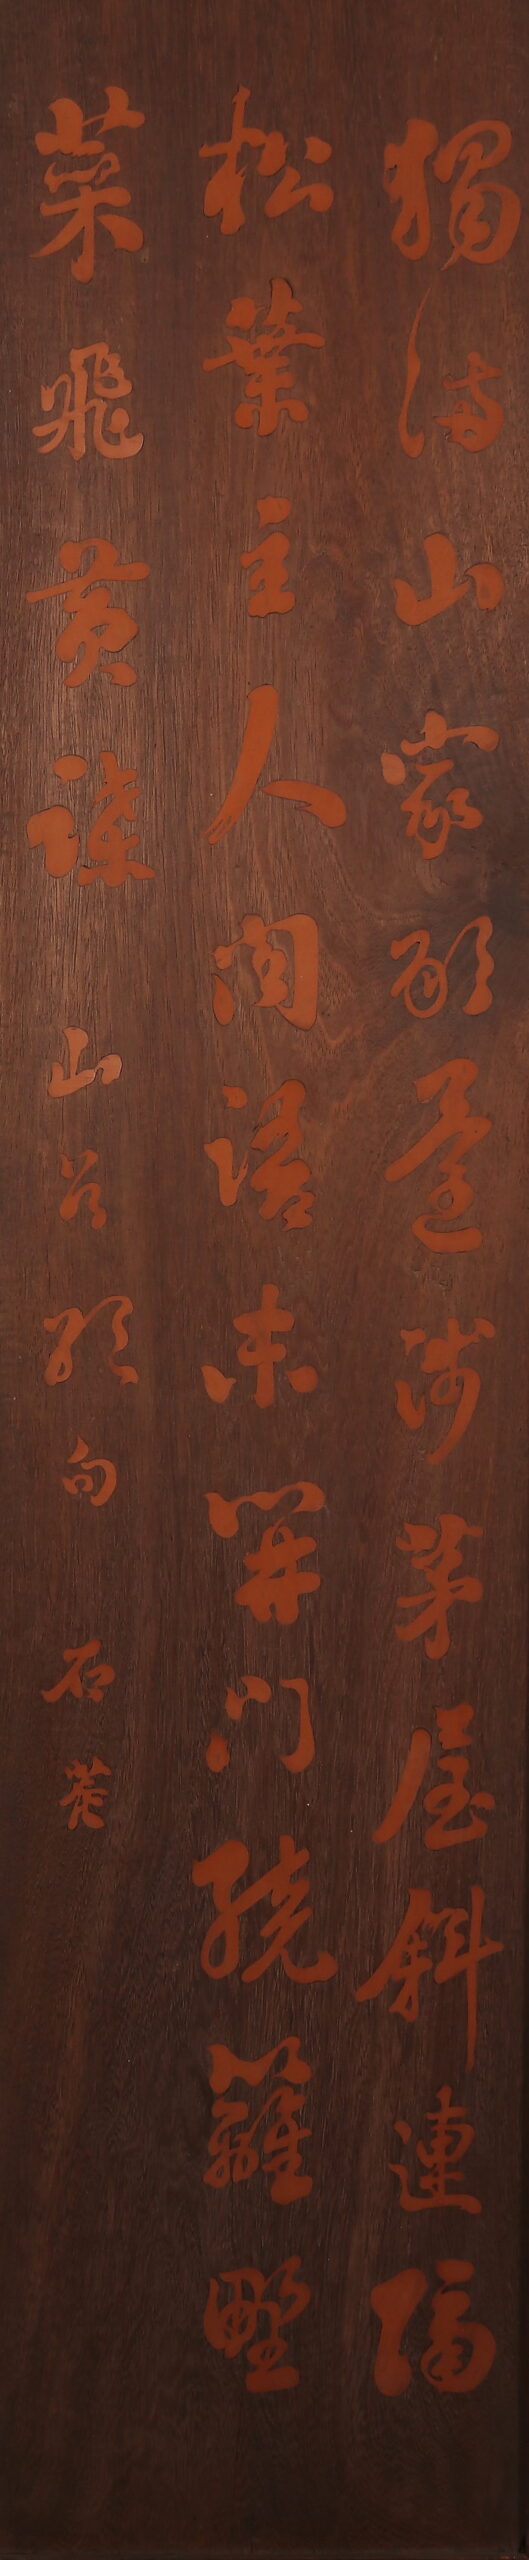 獨訪山家歇還涉茅屋斜連隔
松葉主人聞語未開門繞籬野
菜飛黃蝶 山谷題句 石菴